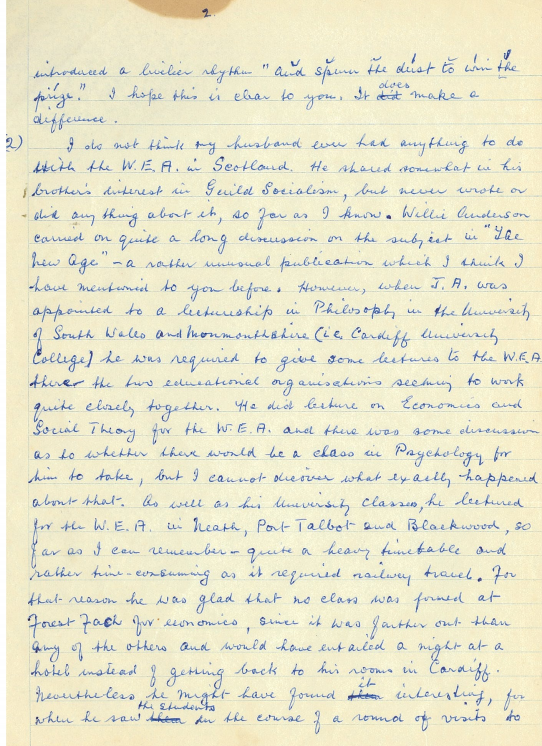 2.
introduced a livelier rhythm "and spurn the dust to win the
prize." I hope this is clear to you. It did does make a
difference.
2) I do not think my husband ever had anything to do
with the W.E.A. in Scotland. He shared somewhat in his
brother's interest in Guild Socialism, but never wrote or
did anything about it, so far as I know. Willie Anderson
carried on quite a long discussion on the subject in "The
New Age" - a rather unusual publication which I think I
have mentioned to you before. However, when J.A. was
appointed to a lectureship in Philosophy in the University
of South Wales and Monmonthshire (i.e. Cardiff University
College) he was required to give some lectures to the W.E.A.
there the two educational organisations seeming to work
quite closely together. He did lecture on Economics and
Social Theory for the W.E.A. and there was some discussion
as to whether there would be a class in Psychology for
him to take, but I cannot discover what exactly happened
about that. As well as his University classes, he lectured
for the W.E.A. in Neath, Port Talbot and Blackwood, so
far as I can remember - quite a heavy timetable and
rather time-consuming as it required railway travel. For
that reason he was glad that no class was formed at
Forest Fach for economics, since it was farther out than
any of the others and would have entailed a night at a
hotel instead of getting back to his rooms in Cardiff.
Nevertheless he might have found them it interesting, for
when he saw them the students in the course of a round of visits to